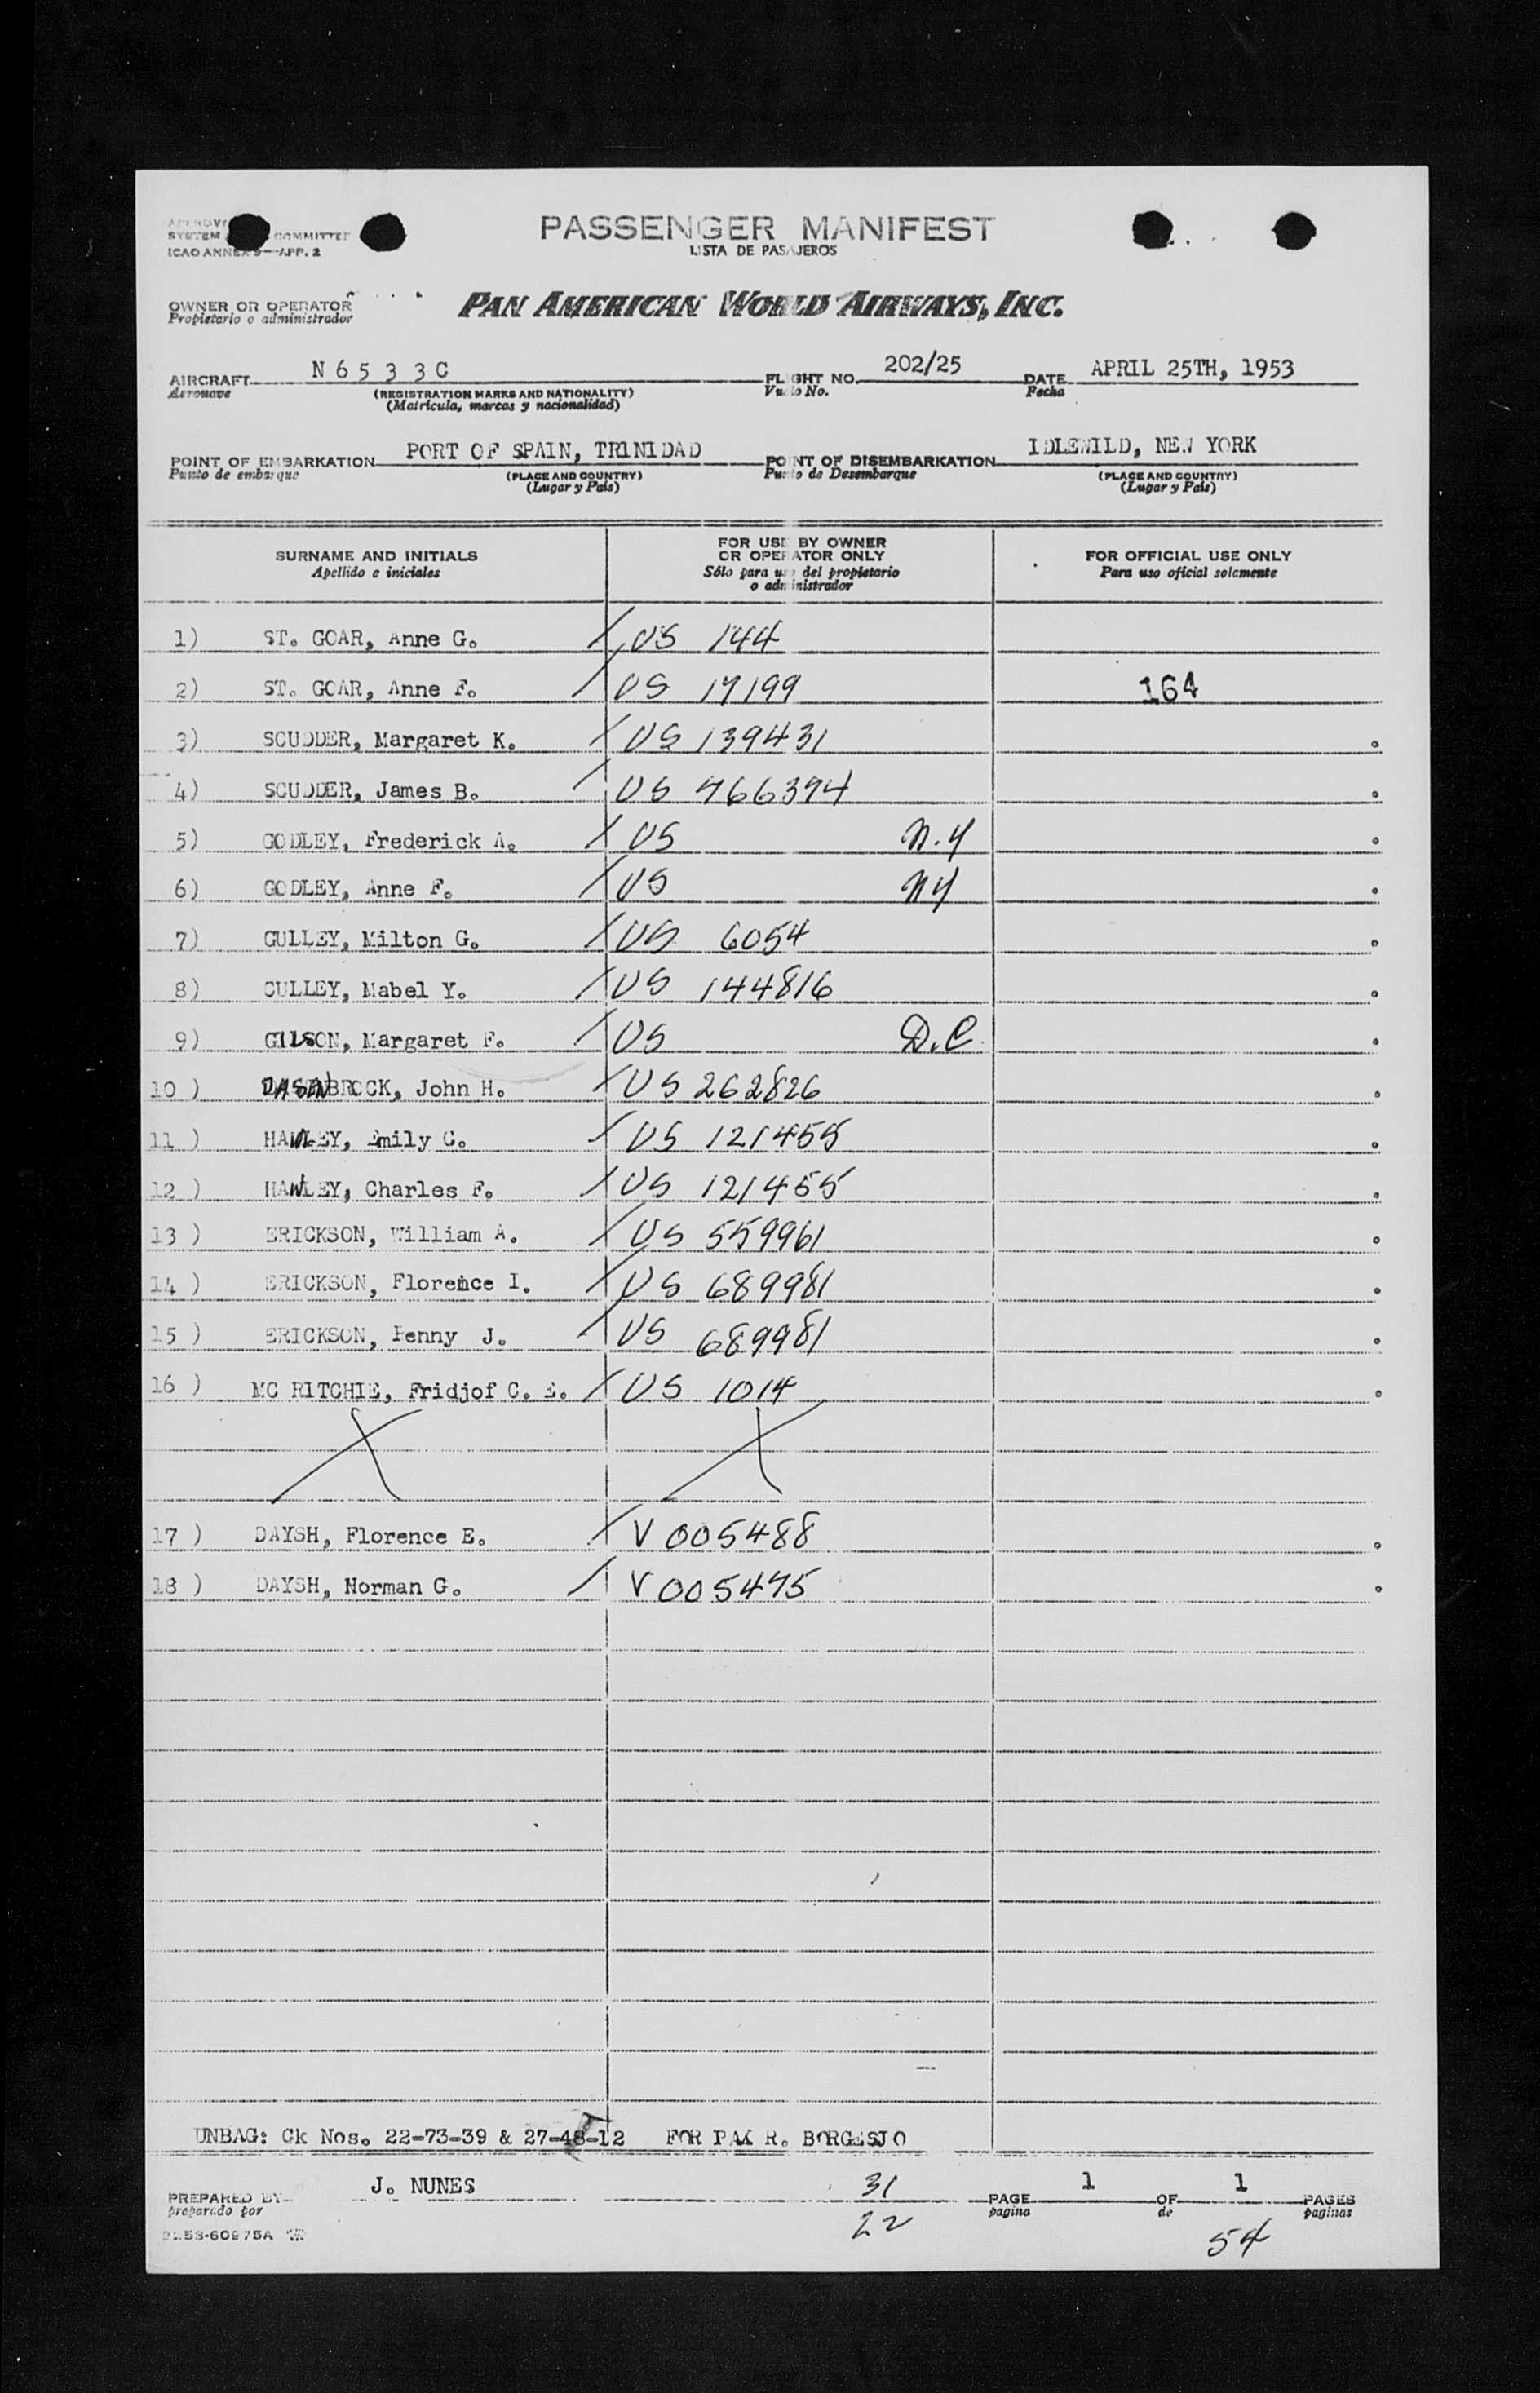 PASSENGER MANIFEST
LISTA DE PASAJEROS
SYSTEM COMMITTEE
ICAO ANNEX 9—APP. 2
OWNER OR OPERATOR
Propietario o administrador
PAN AMERICAN WORLD AIRWAYS, INC.
AIRCRAFT N 6 5 3 3 C FLIGHT NO. 202/25 DATE APRIL 25TH, 1953
Aeronave (REGISTRATION MARKS AND NATIONALITY) Vuelo No. Fecha
(Matrícula, marcas y nacionalidad)
POINT OF EMBARKATION PORT OF SPAIN, TRINIDAD POINT OF DISEMBARKATION IDLEWILD, NEW YORK
Punto de embarque (PLACE AND COUNTRY) Punto de Desembarque (PLACE AND COUNTRY)
(Lugar y País) (Lugar y País)
SURNAME AND INITIALS FOR USE BY OWNER OR OPERATOR ONLY FOR OFFICIAL USE ONLY
Apellido e iniciales Sólo para uso del propietario o administrador Para uso oficial solamente
1) ST. GOAR, Anne G. / US 144
2) ST. GOAR, Anne F. / US 17199 164
3) SCUDDER, Margaret K. / US 139431
4) SCUDDER, James B. / US 766394
5) GODLEY, Frederick A. / US N.Y
6) GODLEY, Anne F. / US NY
7) GULLEY, Milton G. / US 6054
8) CULLEY, Mabel Y. / US 144816
9) GILSON, Margaret F. / US D.C.
10 ) DASENBROCK, John H. / US 262826
11 ) HAWLEY, Emily C. / US 121455
12 ) HAWLEY, Charles F. / US 121455
13 ) ERICKSON, William A. / US 559961
14 ) ERICKSON, Florence I. / US 689981
15 ) ERICKSON, Penny J. / US 689981
16 ) MC RITCHIE, Fridjof C. E. / US 1014
17 ) DAYSH, Florence E. / V 005488
18 ) DAYSH, Norman G. / V 005475
UNBAG: Ck Nos. 22-73-39 & 27-48-12 FOR PAX R. BORGESJO
PREPARED BY J. NUNES 31 PAGE 1 OF 1 PAGES
preparado por 22 pagina de paginas
54